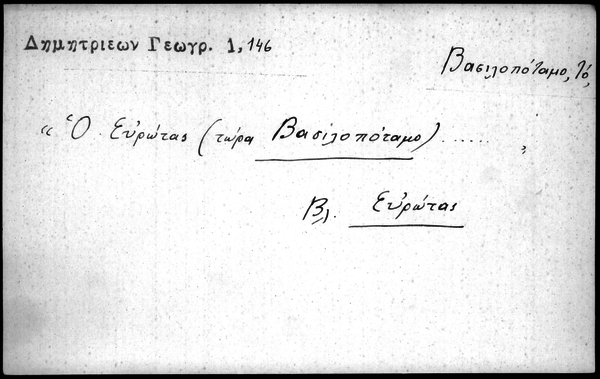 Δημητριεων Γεωγρ. 1, 146
Βασιλοπόταμο, Τό,
« Ὁ Εὐρώτας (τώρα Βασιλοπόταμο) ...... ,
Βλ. Εὐρώτας